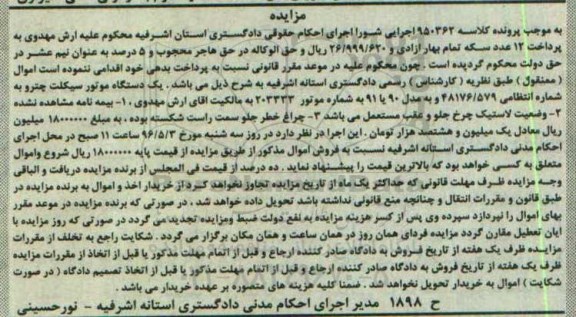 مزایده
به موجب پرونده کلاسه ۹۵۰۳۶۲ اجرایی شورا اجرای احکام حقوقی دادگستری استان اشرفیه محکوم علیه ارش مهدوی به
پرداخت ۱۲ عدد سکه تمام بهار آزادی و ۲۶/۹۹۹/۶۲۰ ریال و حق الوکاله در حق هاجر محجوب و ۵ درصد به عنوان نیم عشر در
حق دولت محکوم گردیده است . چون محکوم علیه در موعد مقرر قانونی نسبت به پرداخت بدهی خود اقدامی ننموده است اموال
( منقول ) طبق نظریه ( کارشناس ) رسمی دادگستری استانه اشرفیه به شرح ذیل می باشد . یک دستگاه موتور سیکلت چترو به
شماره انتظامی ۴۸۱۷۶/۵۷۹ و به مدل ۹۰ یا ۹۱ به شماره موتور ۲۰۳۳۳۳ به مالکیت اقای ارش مهدوی ۱- بیمه نامه مشاهده نشده
۲- وضعیت لاستیک چرخ جلو و عقب مستعمل می باشد ۳- چراغ خطر جلو سمت راست شکسته بوده . به مبلغ ۱۸۰۰۰۰۰۰ میلیون
ریال معادل یک میلیون و هشتصد هزار تومان . این اجرا در نظر دارد در روز سه شنبه مورخ ۹۶/۵/۳ ساعت ۱۱ صبح در محل اجرای
احکام مدنی دادگستری استانه اشرفیه نسبت به فروش اموال مذکور از طریق مزایده از قیمت پایه ۱۸۰۰۰۰۰۰ ریال شروع واموال
متعلق به کسی خواهد بود که بالاترین قیمت را پیشنهاد نماید . ده درصد از قیمت فی المجلس از برنده مزایده دریافت و الباقی
وجه مزایده ظرف مهلت قانونی که حداکثر یک ماه از تاریخ مزایده تجاوز نخواهد کرد از خریدار اخذ و اموال به برنده مزایده در
طبق قانون و مقررات انتقال و چنانچه منع قانونی نداشته باشد تحویل داده خواهد شد . در صورتی که برنده مزایده در موعد مقرر
بهای اموال را نپردازد سپرده وی پس از کسر هزینه مزایده به نفع دولت ضبط ومزایده تجدید می گردد در صورتی که روز مزایده با
ایان تعطیل مقارن گردد مزایده فردای همان روز در همان ساعت و همان مکان برگزار می گردد . شکایت راجع به تخلف از مقررات
مزایده ظرف یک هفته از تاریخ فروش به دادگاه صادر کننده ارجاع و قبل از اتمام مهلت مذکور یا قبل از اتخاذ از مقررات مزایده
ظرف یک هفته از تاریخ فروش به دادگاه صادر کننده ارجاع و قبل از اتمام مهلت مذکور یا قبل از اتخاذ تصمیم دادگاه ( در صورت
شکایت ) اموال به خریدار تحویل نخواهد شد . ضمنا کلیه هزینه های متصوره بر عهده خریدار می باشد .
ح ۱۸۹۸ مدیر اجرای احکام مدنی دادگستری استانه اشرفیه - نورحسینی